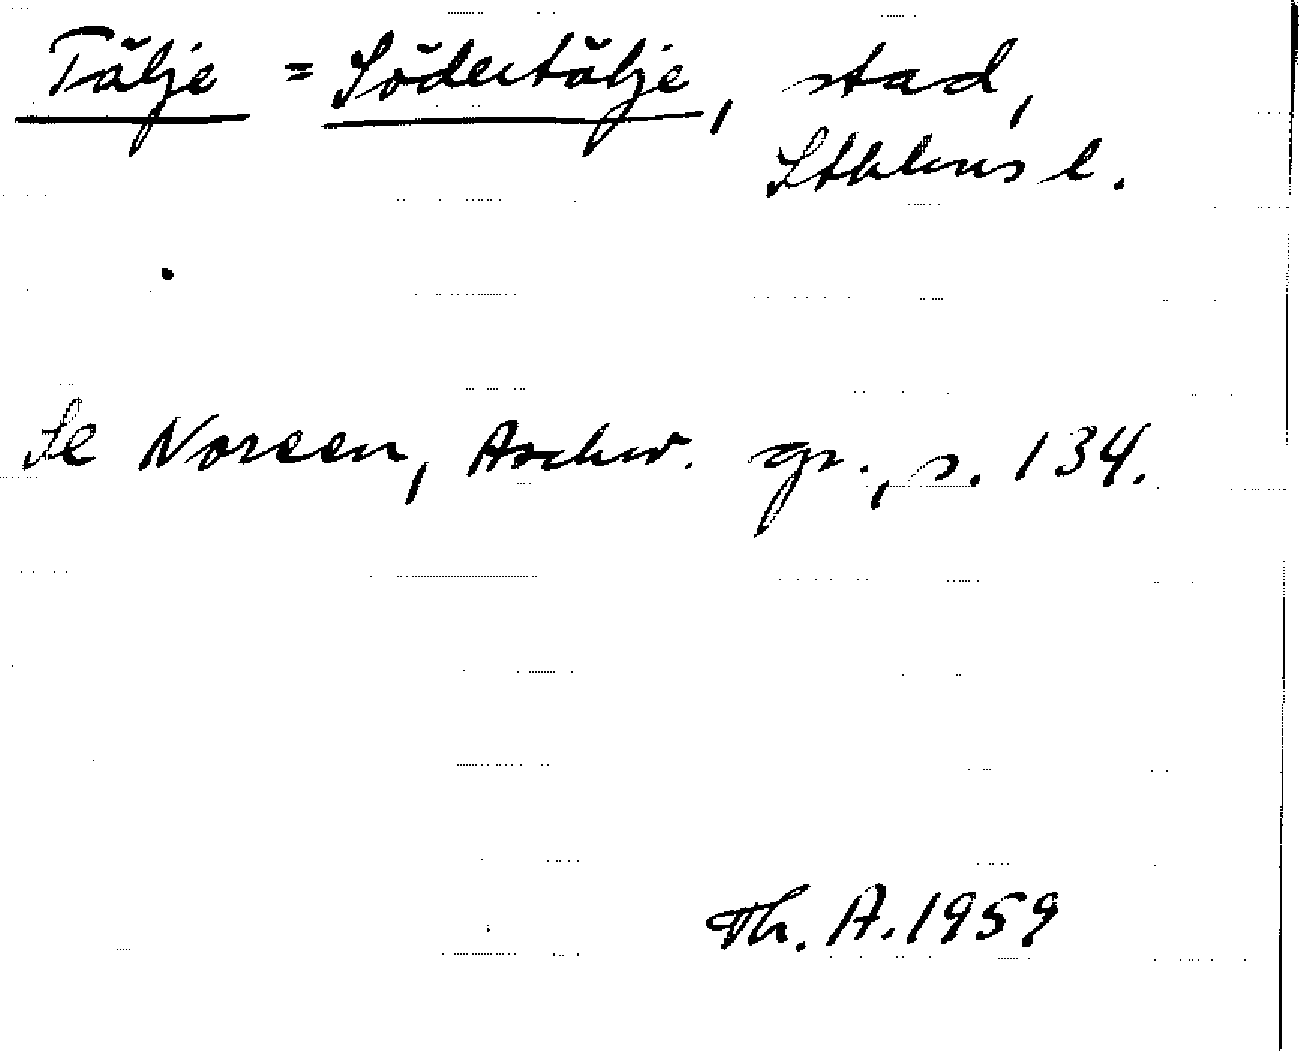 Tälje = Södertälje, stad,
Sthlms l.
Se Noreen, Aschw. gr., s. 134.
Th. A. 1959